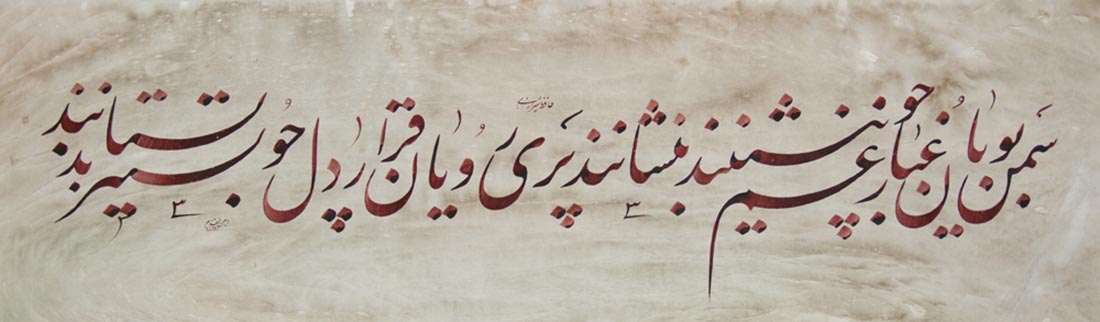 سمن بویان غبار غم چو بنشینند بنشانند پری رویان قرار از دل چو بستیزند بستانند
حافظ شیرازی